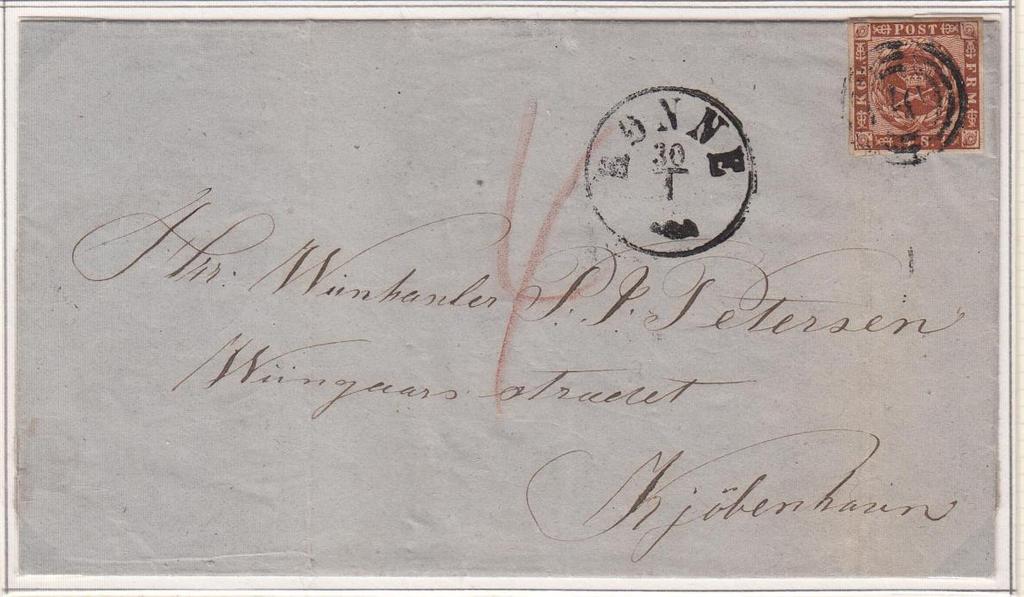 KGL. POST FRM. S.
RØNNE
30
1
4
S. Thr. Wiinhanler P. J. Petersen
Wiingaars strædet
Kjöbenhavn